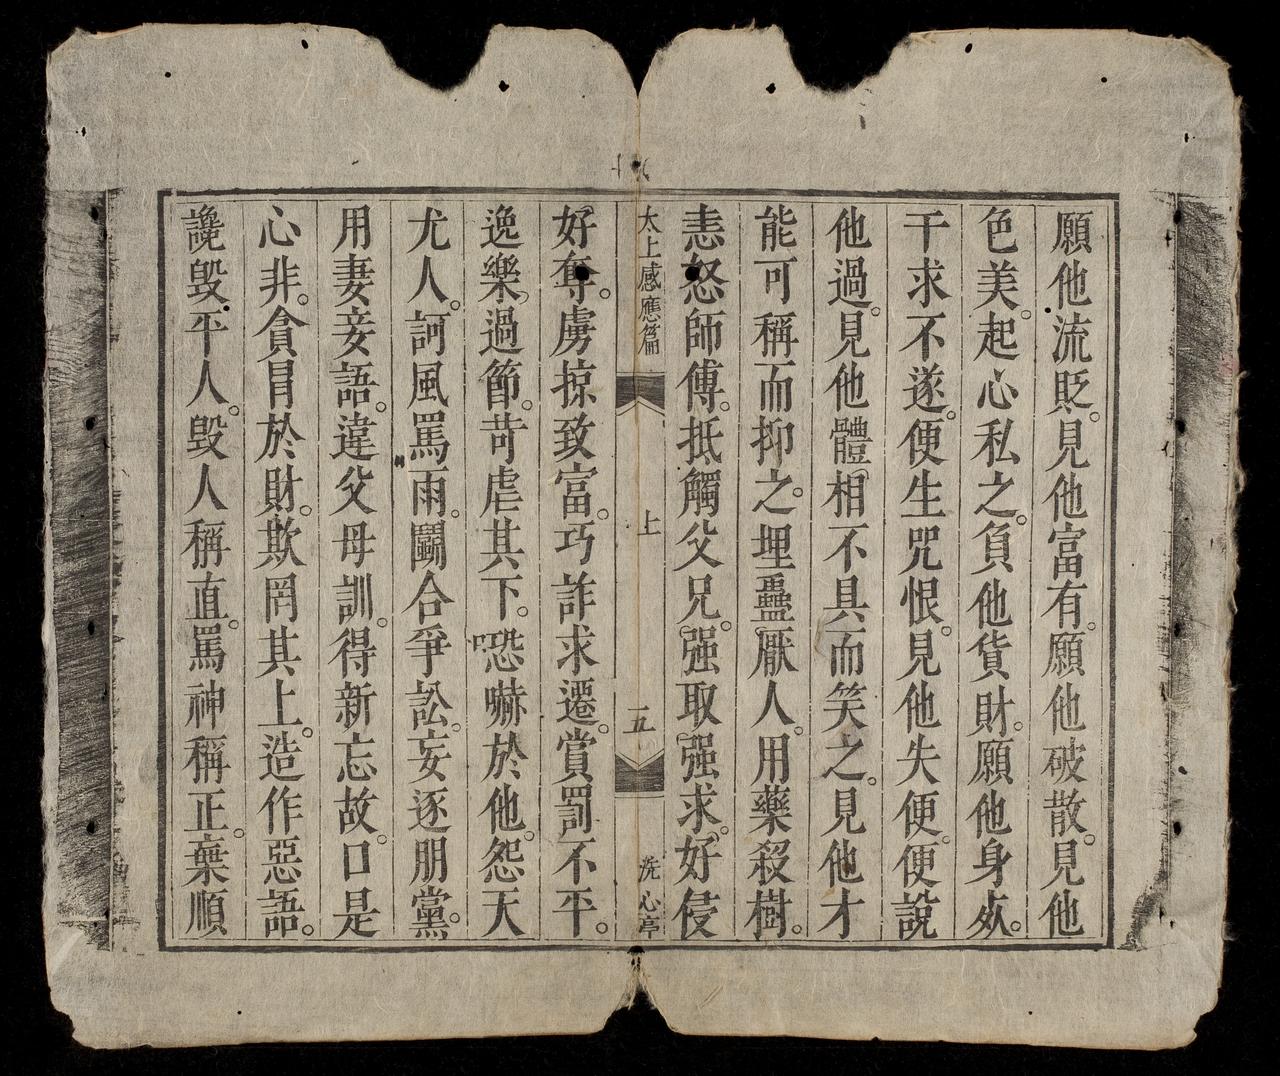 願他流貶。見他富有。願他破散。見他
色美。起心私之。負他貨財。願他身死。
干求不遂。便生咒恨。見他失便。便說
他過。見他體相不具而笑之。見他才
能可稱而抑之。埋蠱厭人。用藥殺樹。
恚怒師傅。抵觸父兄。强取强求。好侵
太上感應篇 上 五 洗心亭
好奪。虜掠致富。巧詐求遷。賞罰不平。
逸樂過節。苛虐其下。恐嚇於他。怨天
尤人。訶風罵雨。鬭合爭訟。妄逐朋黨。
用妻妾語。違父母訓。得新忘故。口是
心非。貪冐於財。欺罔其上。造作惡語。
讒毀平人。毀人稱直。罵神稱正。棄順